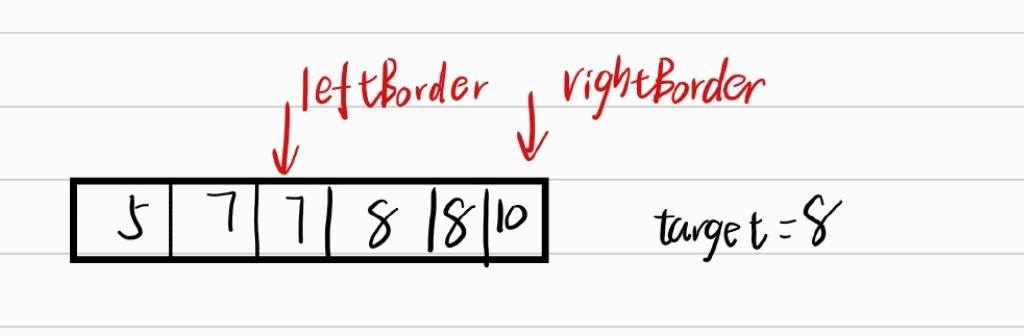 leftBorder rightBorder
5 7 7 8 8 10 target=8